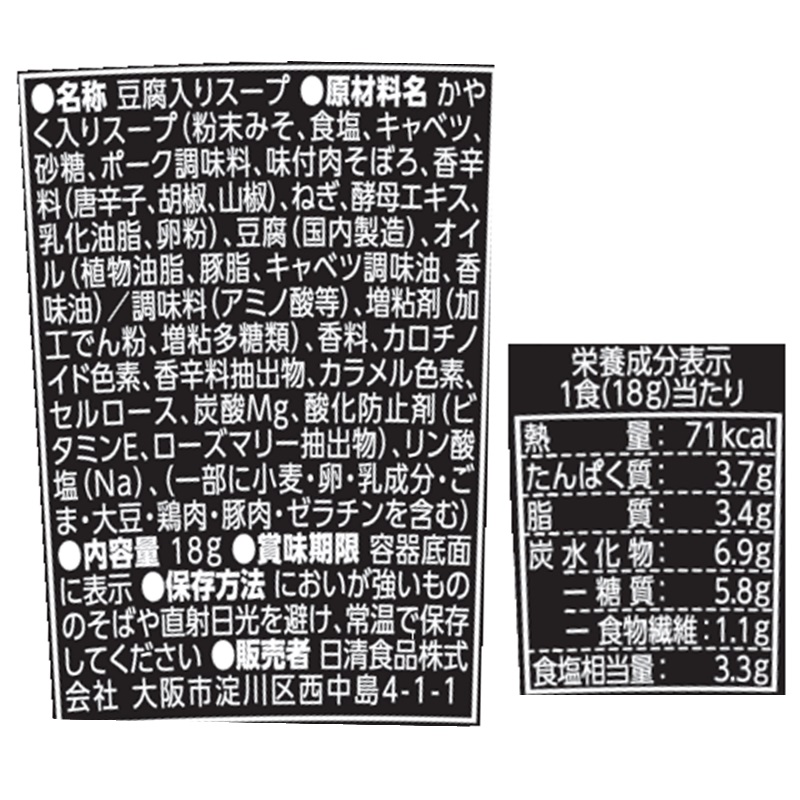 ●名称 豆腐入りスープ ●原材料名 かや
く入りスープ(粉末みそ、食塩、キャベツ、
砂糖、ポーク調味料、味付肉そぼろ、香辛
料(唐辛子、胡椒、山椒)、ねぎ、酵母エキス、
乳化油脂、卵粉)、豆腐(国内製造)、オイ
ル(植物油脂、豚脂、キャベツ調味油、香
味油)／調味料(アミノ酸等)、増粘剤(加
工でん粉、増粘多糖類)、香料、カロチノ
イド色素、香辛料抽出物、カラメル色素、
セルロース、炭酸Mg、酸化防止剤(ビ
タミンE、ローズマリー抽出物)、リン酸
塩(Na)、(一部に小麦・卵・乳成分・ご
ま・大豆・鶏肉・豚肉・ゼラチンを含む)
●内容量 18g ●賞味期限 容器底面
に表示 ●保存方法 においが強いもの
のそばや直射日光を避け、常温で保存
してください ●販売者 日清食品株式
会社 大阪市淀川区西中島4-1-1
栄養成分表示
1食(18g)当たり
熱量: 71kcal
たんぱく質: 3.7g
脂質: 3.4g
炭水化物: 6.9g
ー糖質: 5.8g
ー食物繊維: 1.1g
食塩相当量: 3.3g